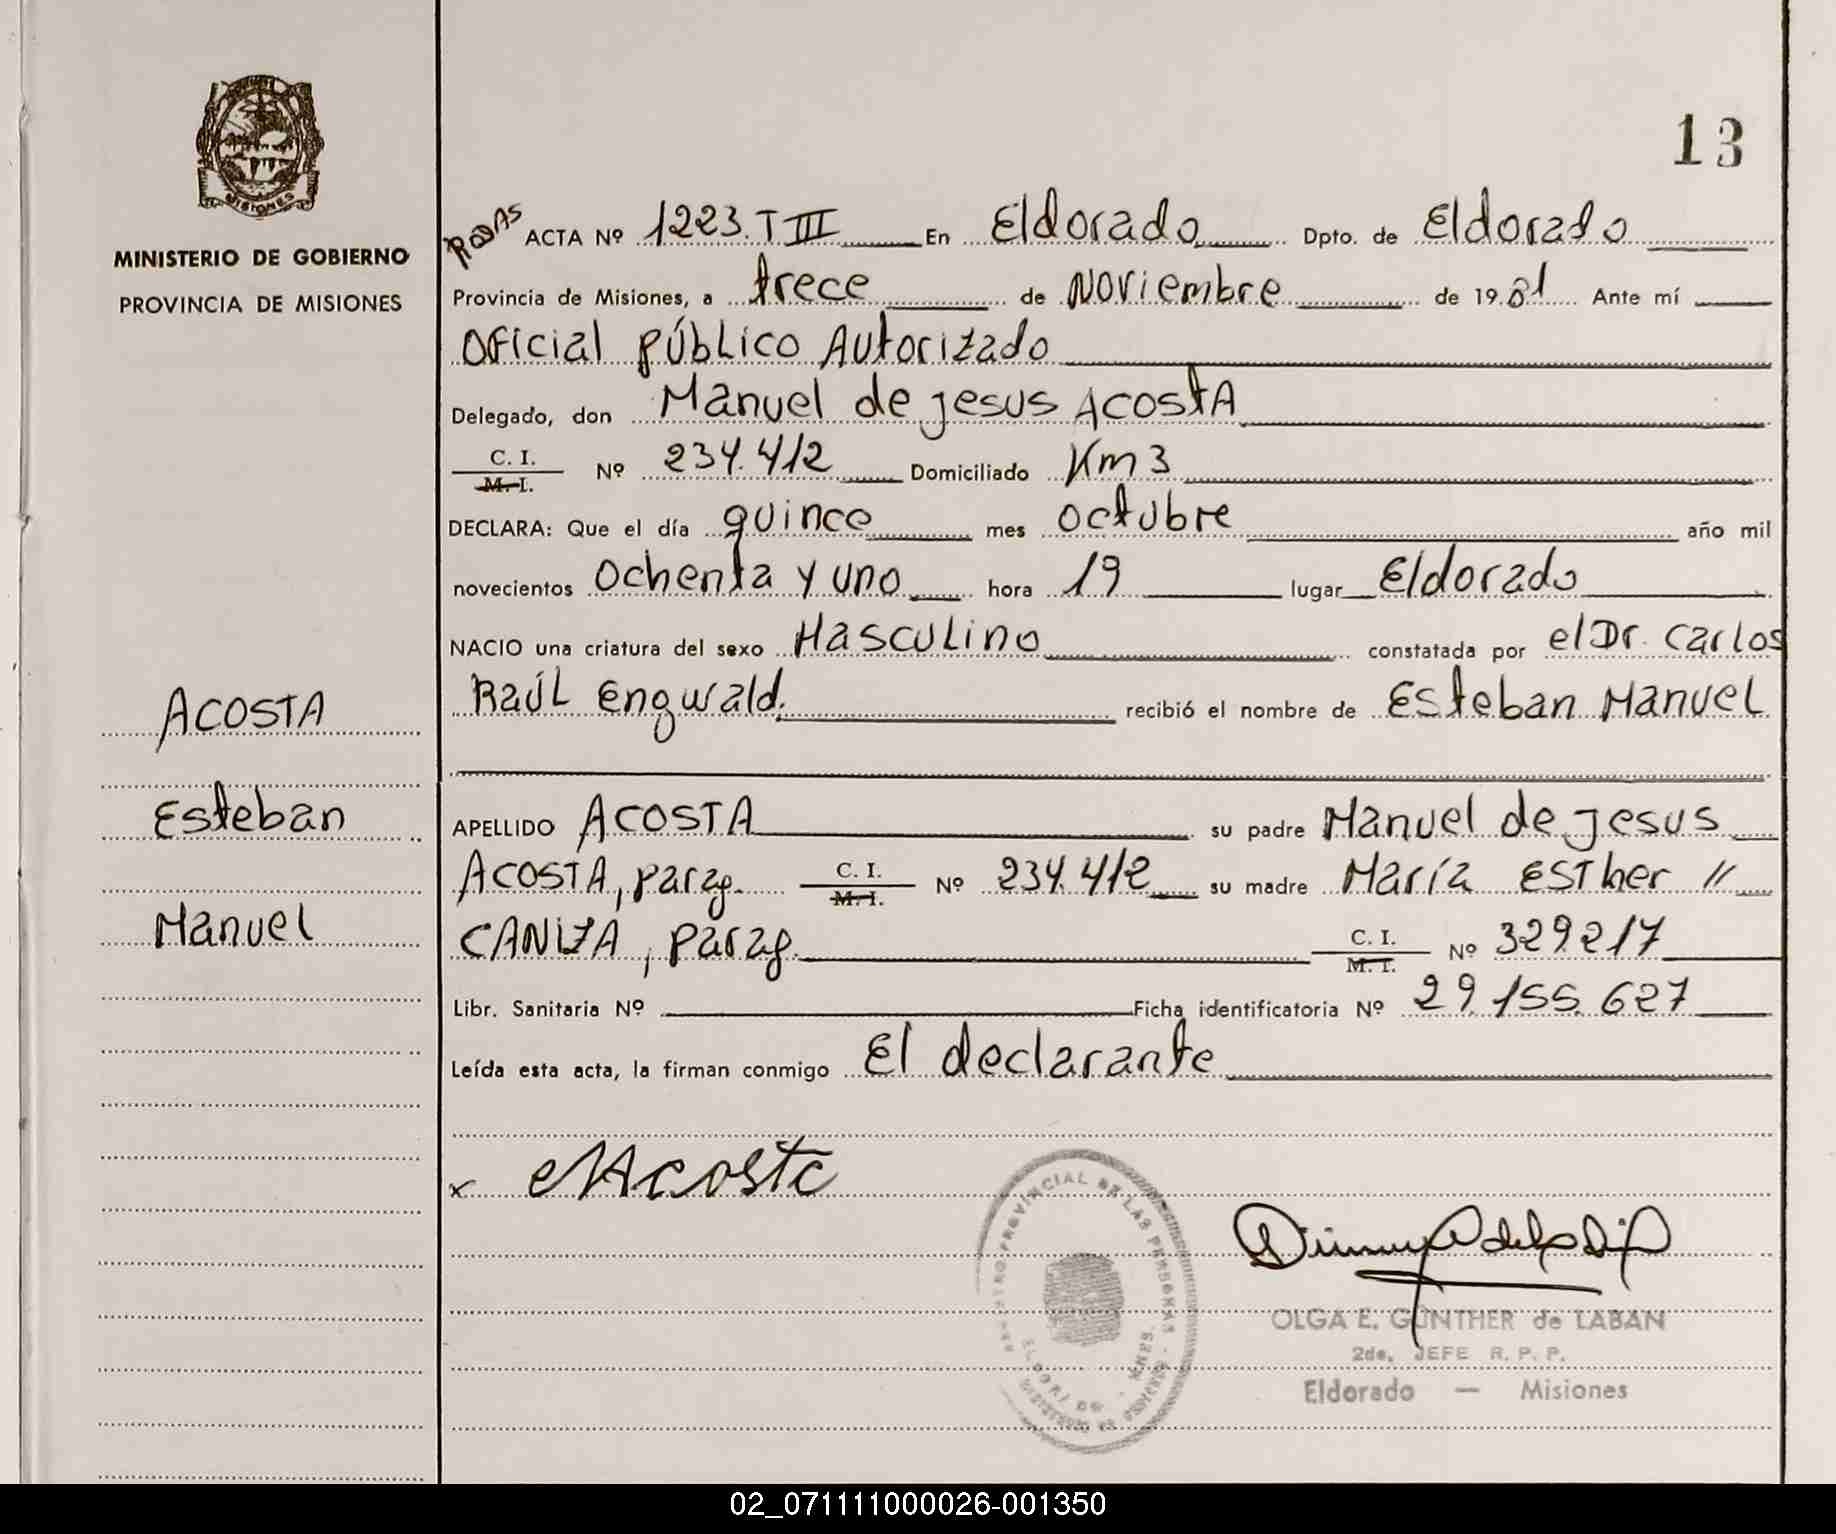 MISIONES
MINISTERIO DE GOBIERNO
PROVINCIA DE MISIONES
ACOSTA
Esteban
Manuel
13
ACTA Nº 1223. T III En Eldorado Dpto. de Eldorado
Provincia de Misiones, a trece de Noviembre de 19 81 Ante mí
Oficial Público Autorizado
Delegado, don Manuel de Jesus Acosta
C. I.
M. I. Nº 234.412 Domiciliado Km 3
DECLARA: Que el día quince mes octubre año mil
novecientos ochenta y uno hora 19 lugar Eldorado
NACIO una criatura del sexo Masculino constatada por el Dr. Carlos
Raúl Engwald. recibió el nombre de Esteban Manuel
APELLIDO ACOSTA su padre Manuel de Jesus
ACOSTA, parag. C. I. M. I. Nº 234.412 su madre María Esther //
CANIZA, parag. C. I. M. I. Nº 329.217
Libr. Sanitaria Nº Ficha identificatoria Nº 29.155.627
Leída esta acta, la firman conmigo El declarante
x MAcosta
PROVINCIAL DE LAS PERSONAS
OLGA E. GÜNTHER de LABAN
2da. JEFE R. P. P.
Eldorado — Misiones
02_071111000026-001350